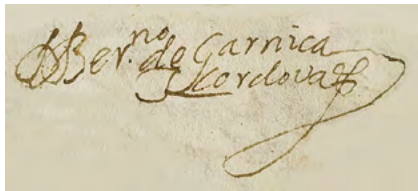 Ber.no de Garnica
y Cordova